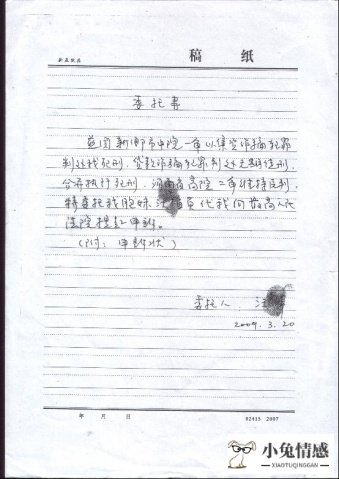 稿 纸
委托书
兹因新乡市中院一审以集资诈骗犯罪
判处我死刑,贷款诈骗犯罪判处无期徒刑,
合并执行死刑,河南省高院二审维持原判,
特委托我胞妹 代我向最高人民
法院提起申诉。
(附:申诉状)
委托人:汪
2009.3.20
年 月 日
02415 2007
小兔情感
XIAOTUQINGGAN